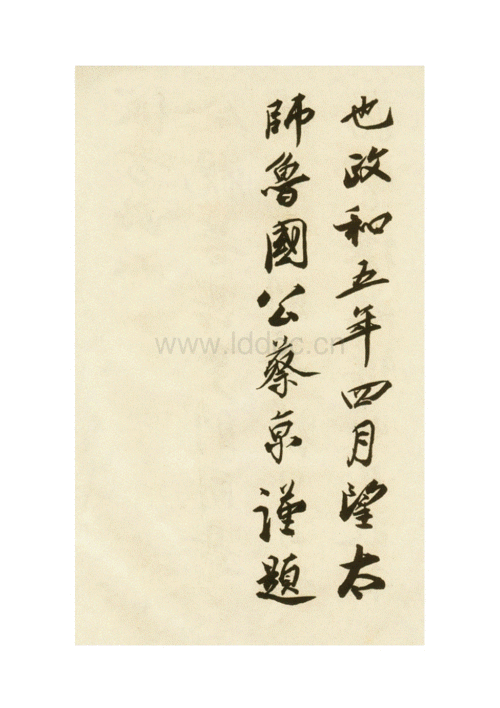 也政和五年四月望太
師魯國公蔡京謹題
www.lddoc.cn